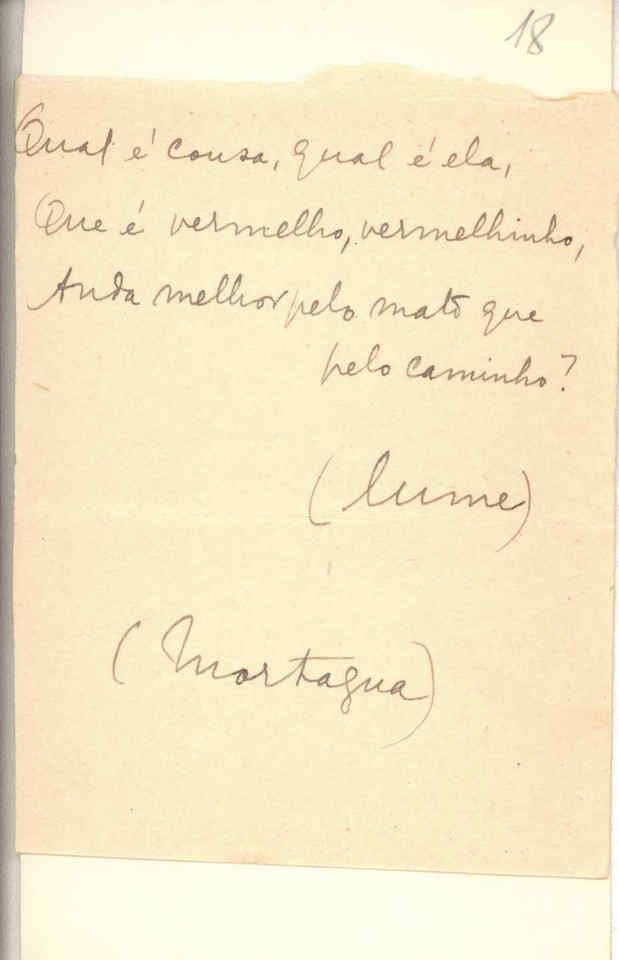 18
Qual é cousa, qual é ela,
Que é vermelho, vermelhinho,
Anda melhor pelo mato que
pelo caminho?
(lume)
(Mortagua)